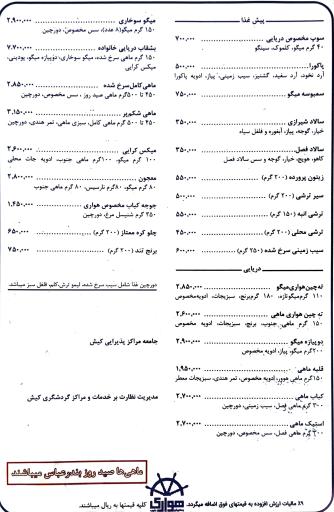 پیش غذا
سوپ مخصوص دریایی ۷۰۰,۰۰۰
۴۰ گرم میگو، کلموک، سینگو
پاکورا ۵۰۰,۰۰۰
آرد نخود، آرد سفید، گشنیز، سیب زمینی، پیاز، ادویه پاکورا
سمبوسه میگو ۷۵۰,۰۰۰
سالاد شیرازی ۳۵۰,۰۰۰
خیار، گوجه، پیاز، آبغوره و فلفل سیاه
سالاد فصل ۳۵۰,۰۰۰
کاهو، هویج، خیار، گوجه و سس سالاد فصل
زیتون پرورده (۲۰۰ گرم) ۵۵۰,۰۰۰
سیر ترشی (۲۰۰ گرم) ۵۰۰,۰۰۰
ترشی انبه (۱۵۰ گرم) ۵۵۰,۰۰۰
ترشی محلی (۲۰۰ گرم) ۴۵۰,۰۰۰
سیب زمینی سرخ شده (۲۵۰ گرم) ۶۰۰,۰۰۰
دریایی
ته‌چین‌هواری‌میگو ۲,۸۵۰,۰۰۰
۱۱۰ گرم‌میگوتازه، ۱۸۰ گرم‌برنج، سبزیجات، ادویه‌مخصوص
ته چین هواری ماهی ۲,۶۰۰,۰۰۰
۱۵۰ گرم ماهی جنوب، برنج، سبزیجات، ادویه مخصوص
دوپیازه میگو ۲,۹۰۰,۰۰۰
۲۰۰گرم میگو، پیاز، ادویه مخصوص
قلیه ماهی ۱,۹۵۰,۰۰۰
۱۵۰گرم ماهی هوور، ادویه مخصوص، تمر هندی، سبزیجات معطر
کباب ماهی ۲,۷۰۰,۰۰۰
۳۰۰ گرم ماهی فصل، سیب زمینی، دورچین
استیک ماهی ۲,۷۰۰,۰۰۰
گرم ماهی فصل، سس مخصوص، دورچین
میگو سوخاری ۲,۹۰۰,۰۰۰
۱۵۰ گرم میگو(۸ عدد)، سس مخصوص، دورچین
بشقاب دریایی خانواده ۷,۷۰۰,۰۰۰
۱۵۰ گرم ماهی سرخ شده، میگو سوخاری، دوپیازه میگو، پودینی،
میگس کرایی
ماهی‌کامل‌سرخ شده ۲,۸۵۰,۰۰۰
۴۵۰ تا ۵۰۰گرم ماهی صید روز ، سس مخصوص، دورچین
ماهی شکم‌پر ۳,۱۵۰,۰۰۰
۴۵۰ تا ۵۰۰ گرم ماهی کامل، سبزی ماهی، تمر هندی، دورچین
میکس کرایی ۲,۶۰۰,۰۰۰
۱۰۰ گرم میگو، ۱۰۰گرم ماهی جنوب، ادویه جات محلی
معجون ۲,۸۰۰,۰۰۰
۸۰ گرم میگو، ۸۰گرم نارسیس، ۸۰ گرم ماهی جنوب
جوجه کباب مخصوص هواری ۱,۴۵۰,۰۰۰
۲۵۰ گرم شنیسل مرغ، دورچین
چلو کره ممتاز (۲۰۰ گرم) ۶۵۰,۰۰۰
برنج تند (۲۰۰ گرم) ۷۵۰,۰۰۰
دورچین غذا شامل سیب سرخ شده، لیمو ترش،کلم، فلفل سبز میباشد.
جامعه مراکز پذیرایی کیش
مدیریت نظارت بر خدمات و مراکز گردشگری کیش
ماهی‌ها صید روز بندرعباس میباشند
۹٪ مالیات ارزش افزوده به قیمتهای فوق اضافه میگردد.
هواری
کلیه قیمتها به ریال میباشند.